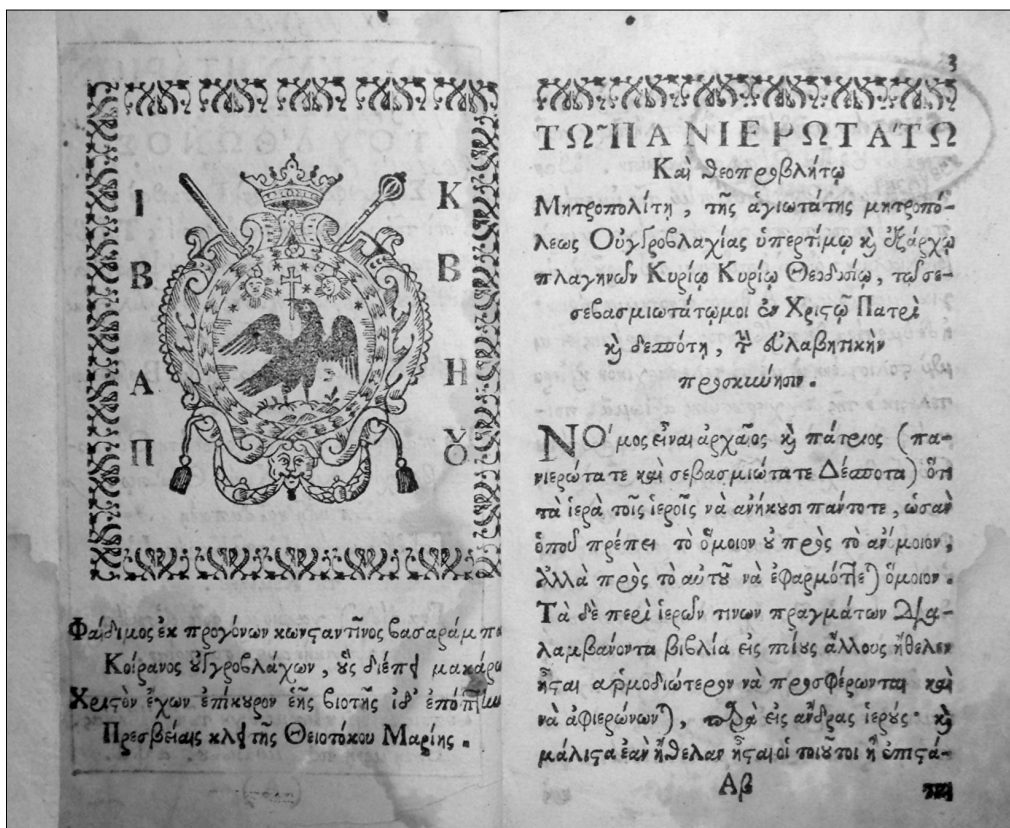 Ι Κ
Β Β
Α Η
Π Ȣ
Φαίδιμος ἐκ προγόνων κωνϛαντῖνος βασαράμπας
Κοίρανος ȣ̓γγροβλάχων, ὃς διέπει μακάρων
Χριϛὸν ἔχων ἐπίκȣρον ἑῆς βιοτῆς ἰδ'
Πρεσβείαις κλειτῆς Θειοτόκου Μαρίης.
3
ΤΩ͂ ΠΑΝΙΕΡΩΤΑ'ΤΩ
Καὶ θεοπροβλήτῳ
Μητροπολίτῃ, τῆς ἁγιωτάτης μητροπό-
λεως Οὐγγροβλαχίας ὑπερτίμῳ κὶ ἐξάρχῳ
πλαγηνῶν Κυρίῳ Κυρίῳ Θεοδοσίῳ, τῷ σε-
σεβασμιωτάτῳμοι ἐν Χριϛῷ Πατρὶ
κὶ δεσπότῃ, τὴν εὐλαβητικὴν
προσκύνησιν.
ΝΟ'μος εἶναι ἀρχαῖος κὶ πάτριος (πα-
νιερώτατε καὶ σεβασμιώτατε Δέσποτα) ὅτι
τὰ ἱερὰ τοῖς ἱεροῖς νὰ ἀνήκȣσι πάντοτε, ὡσὰν
ὁποῦ πρέπει τὸ ὅμοιον ȣ̓ πρὸς τὸ ἀνόμοιον,
ἀλλὰ πρὸς τὸ αὐτȣ͂ νὰ ἐφαρμόττεται ὅμοιον.
Τὰ δὲ περὶ ἱερῶν τινων πραγμάτων δια-
λαμβάνοντα βιβλία εἰς ποίȣς ἄλλους ἤθελεν
ἦϛαι ἁρμοδιώτερον νὰ προσφέρωνται καὶ
νὰ ἀφιερώνωνται, παρὰ εἰς ἄνδρας ἱερȣ́ς· κὶ
μάλιϛα ἐὰν ἤθελαν ἦϛαι οἱ τοιοῦτοι ἢ ἐπιϛά-
Αβ